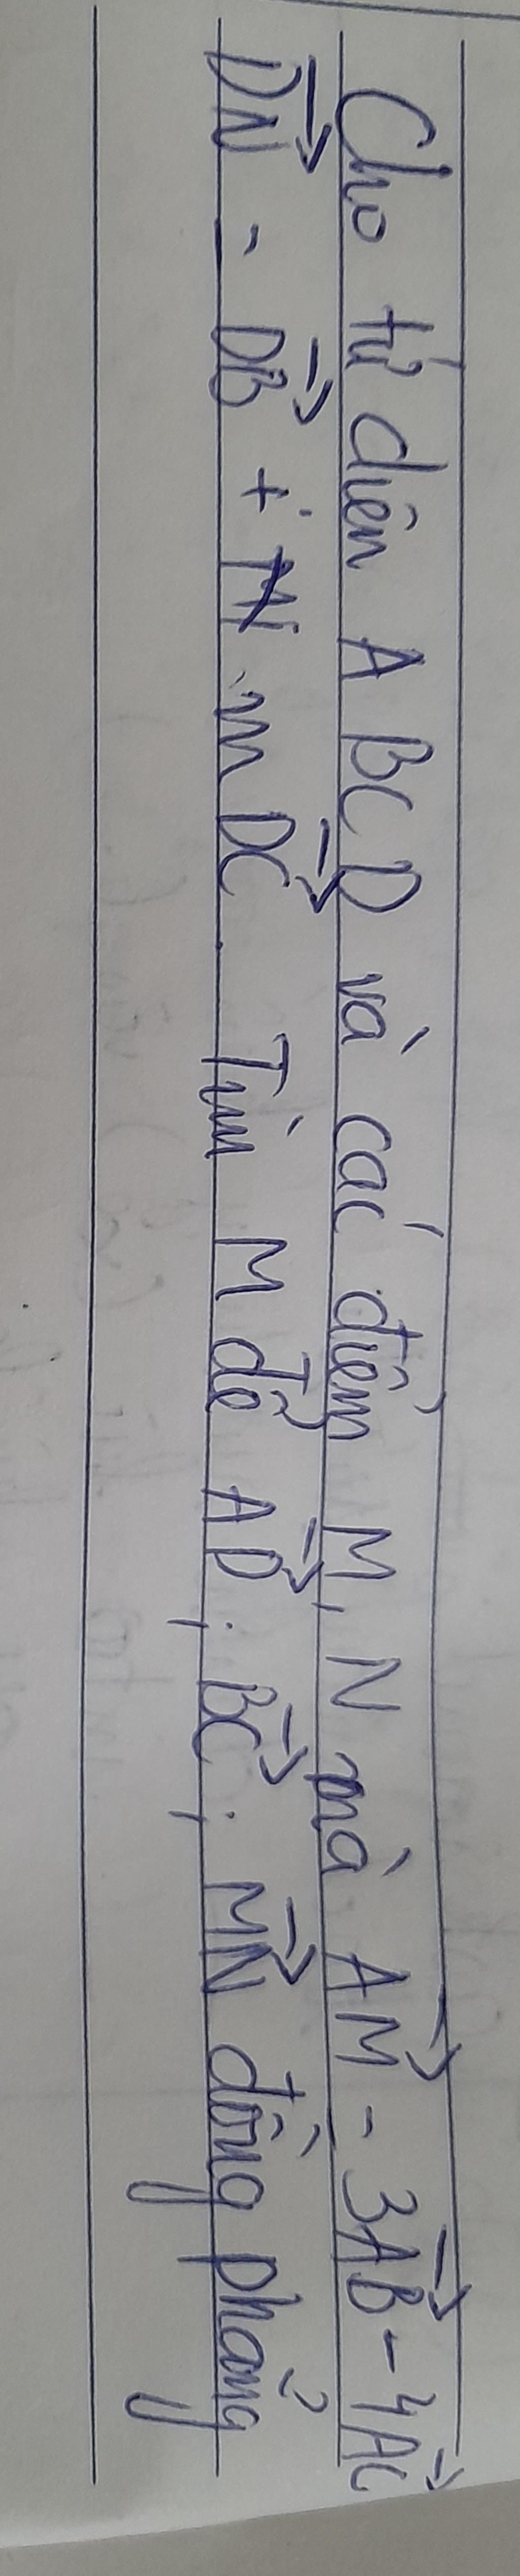 Cho tứ diên ABCD và các điểm M, N mà AM = 3AB - 4AC
DN = DB + m DC. Tìm M để AD, BC, MN đồng phẳng